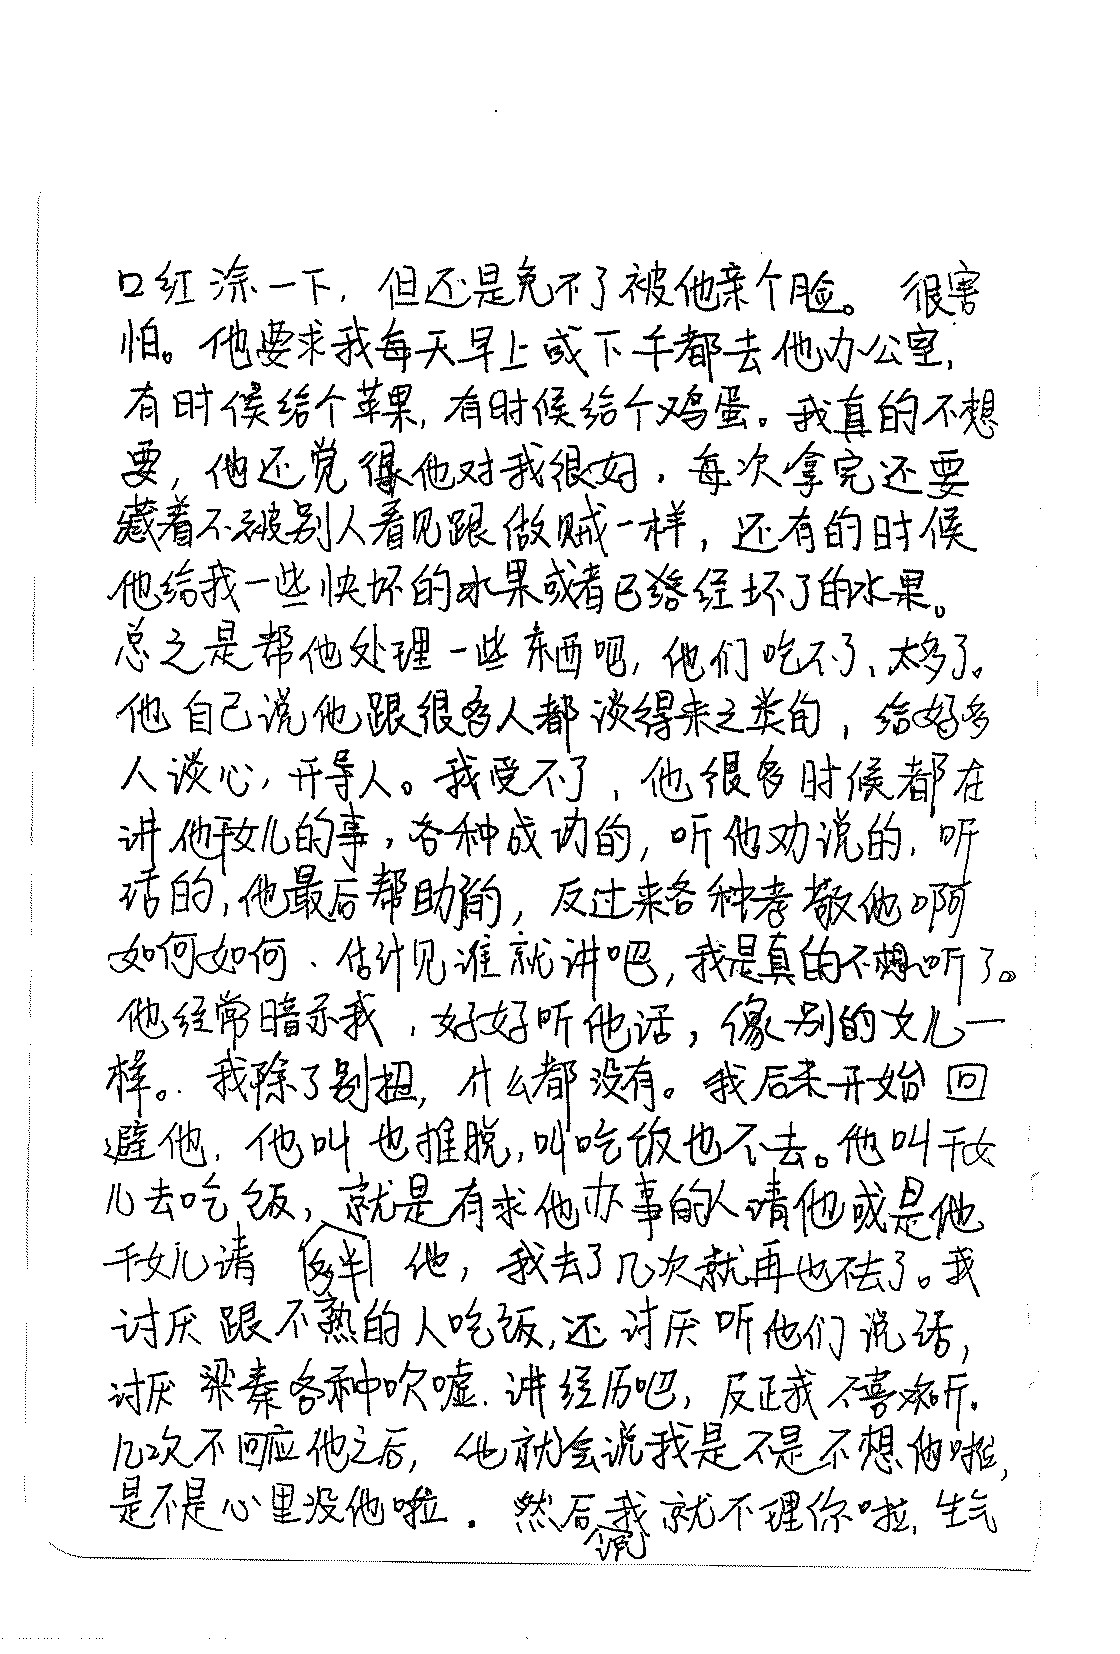 口红涂一下，但还是免不了被他亲个脸。很害
怕。他要求我每天早上或下午都去他办公室，
有时候给个苹果，有时候给个鸡蛋。我真的不想
要，他还觉得他对我很好，每次拿完还要
藏着不被别人看见跟做贼一样，还有的时候
他给我一些快坏的水果或者已经坏了的水果。
总之是帮他处理一些东西吧，他们吃不了、太多了。
他自己说他跟很多人都谈得来之类的，给好多
人谈心，开导人。我受不了，他很多时候都在
讲他干女儿的事，各种成功的，听他劝说的，听
话的，他最后帮助的，反过来各种孝敬他啊
如何如何、估计见谁就讲吧，我是真的不想听了。
他经常暗示我，好好听他话，像别的女儿一
样。我除了别扭，什么都没有。我后来开始回
避他，他叫也推脱，叫吃饭也不去。他叫干女
儿去吃饭，就是有求他办事的人请他或是他
干女儿请 他，我去了几次就再也不去了。我
讨厌跟不熟的人吃饭，还讨厌听他们说话，
讨厌梁秦各种吹嘘、讲经历吧，反正我不喜欢听。
几次不回应他之后，他就会说我是不是不想他啦，
是不是心里没他啦。然后说我就不理你啦，生气